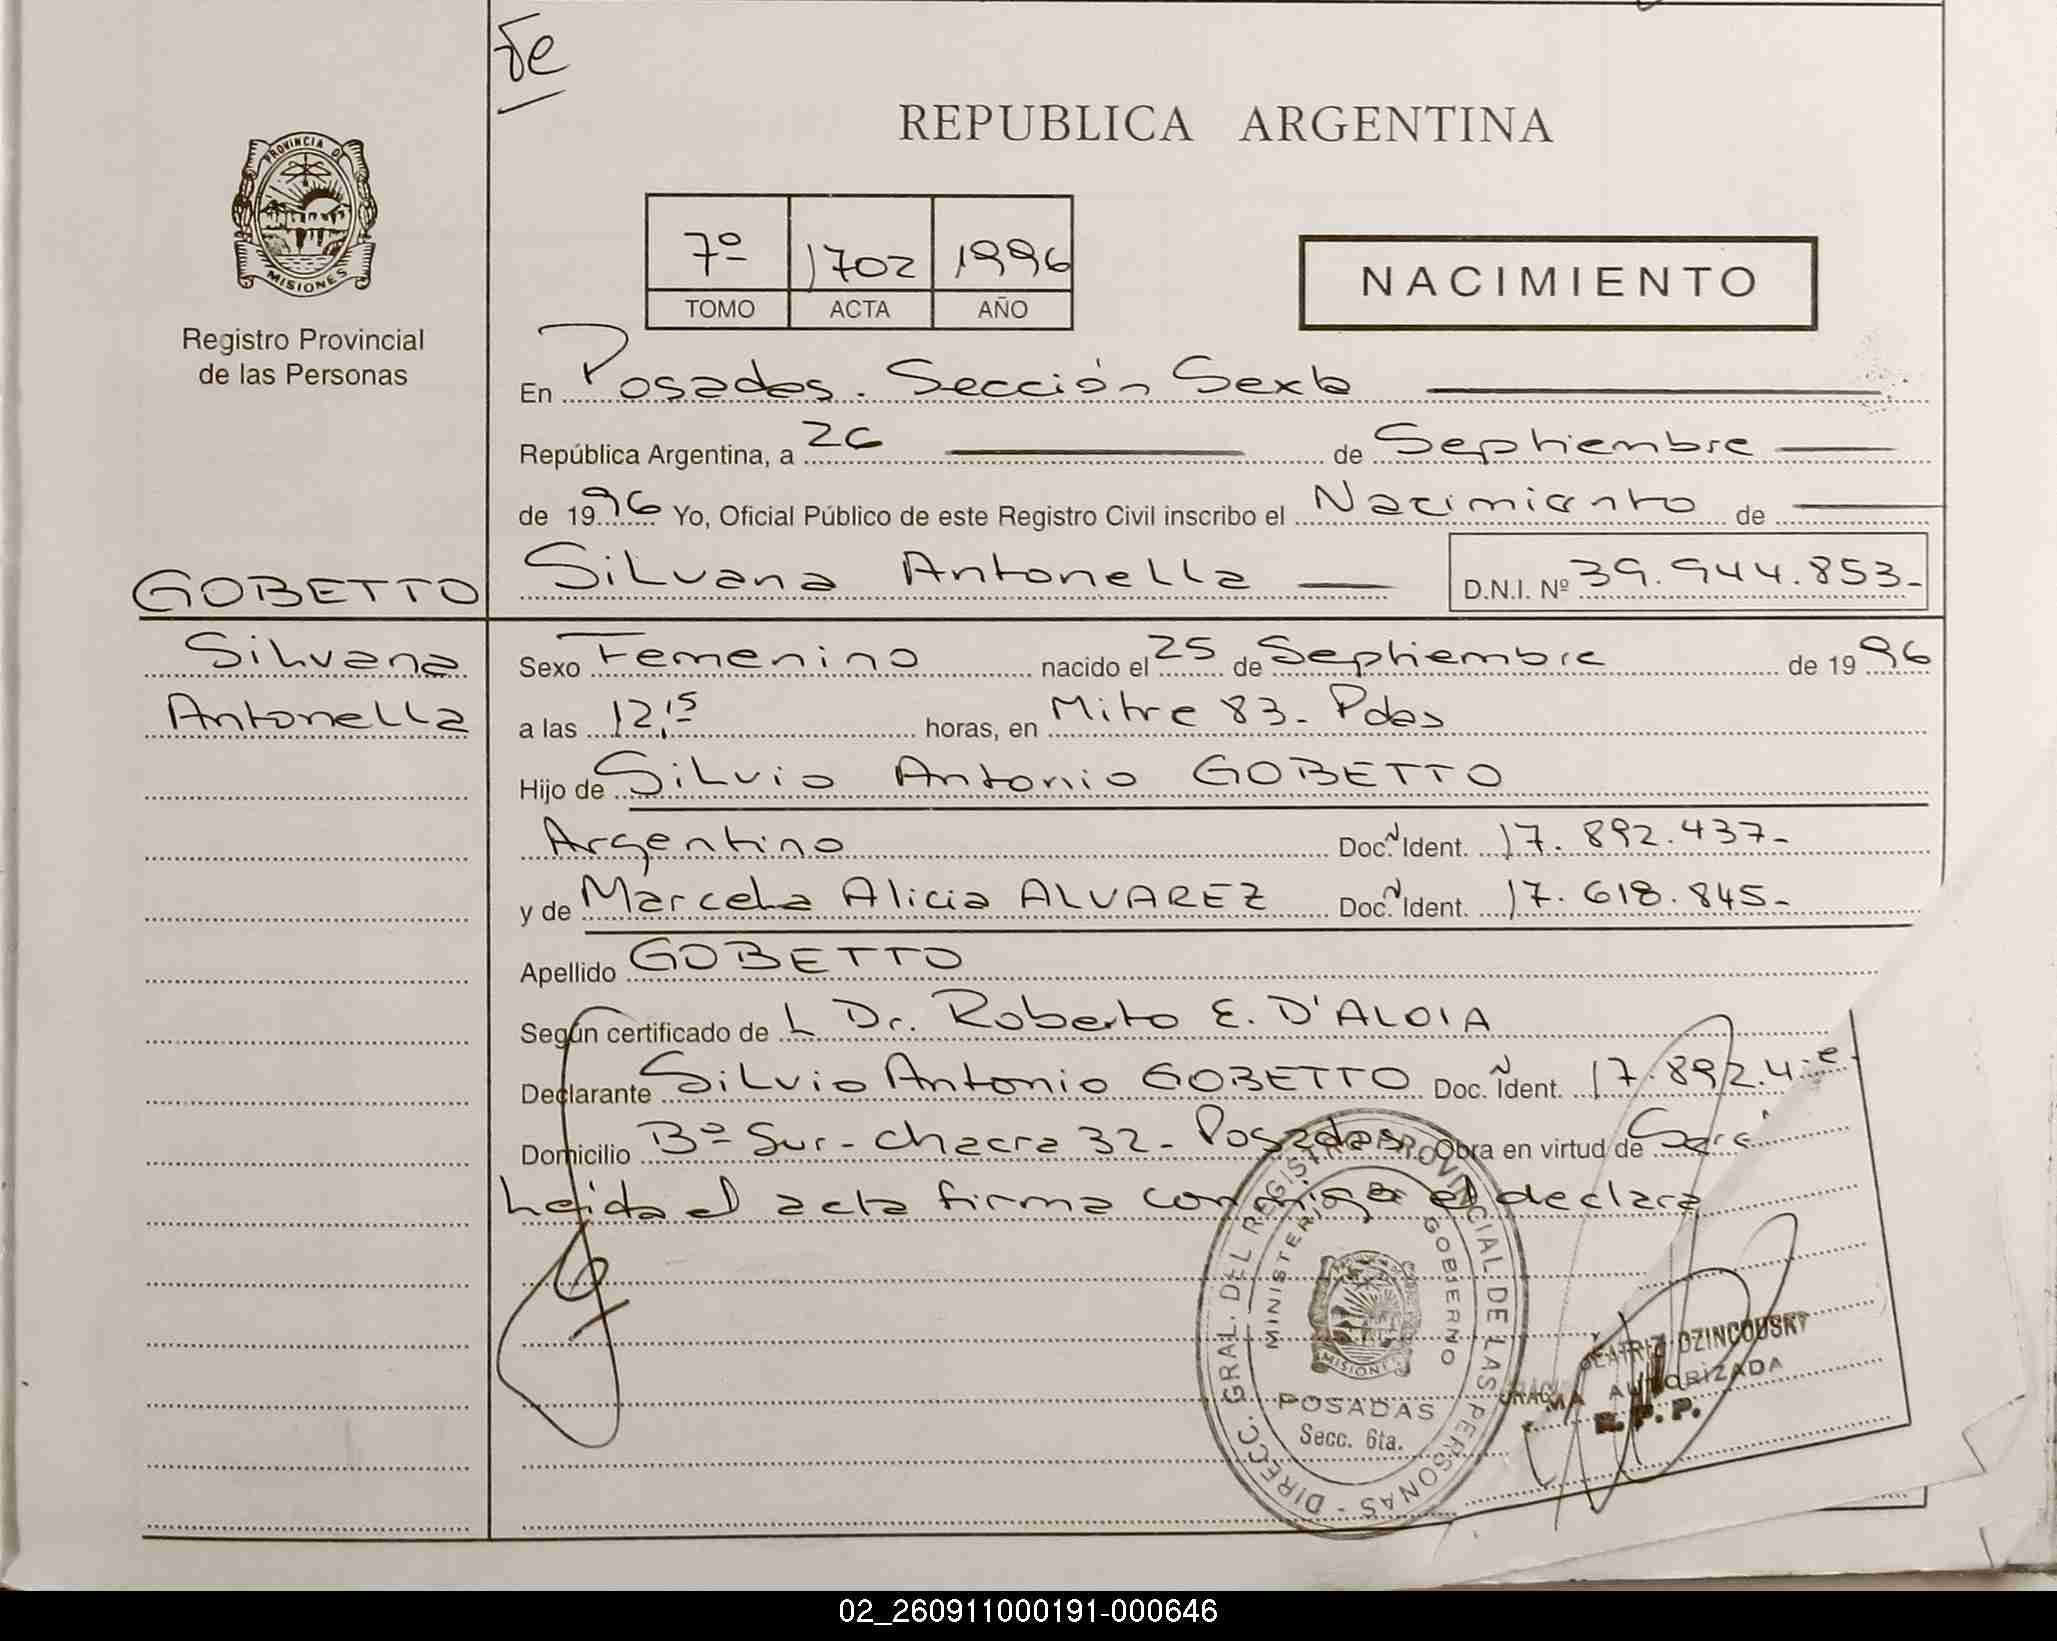 Te
REPUBLICA ARGENTINA
PROVINCIA D
MISIONES
Registro Provincial
de las Personas
7º 1702 1996
TOMO ACTA AÑO
NACIMIENTO
En Posadas. Sección Sexta
República Argentina, a 26 de Septiembre
de 1996 Yo, Oficial Público de este Registro Civil inscribo el Nacimiento de
GOBETTO Silvana Antonella D.N.I. Nº 39.944.853-
Silvana
Antonella
Sexo Femenino nacido el 25 de Septiembre de 1996
a las 12,15 horas, en Mitre 83- Pdas
Hijo de Silvio Antonio GOBETTO
Argentino Doc. Ident. 17.892.437-
y de Marcela Alicia ALVAREZ Doc. Ident. 17.618.845-
Apellido GOBETTO
Según certificado de L Dr. Roberto E. D'ALOIA
Declarante Silvio Antonio GOBETTO Doc. Ident. 17.892.4
Domicilio Bº Sur - Chacra 32 - Posadas. Obra en virtud de
Leida el acta firma conmigo el declara
DIRECC. GRAL. DEL REGISTRO PROVINCIAL DE LAS PERSONAS -
MINISTERIO DE GOBIERNO
MISIONES
POSADAS
Secc. 6ta.
BEATRIZ DZINCOUSKY
FIRMA AUTORIZADA
R. P. P.
02_260911000191-000646